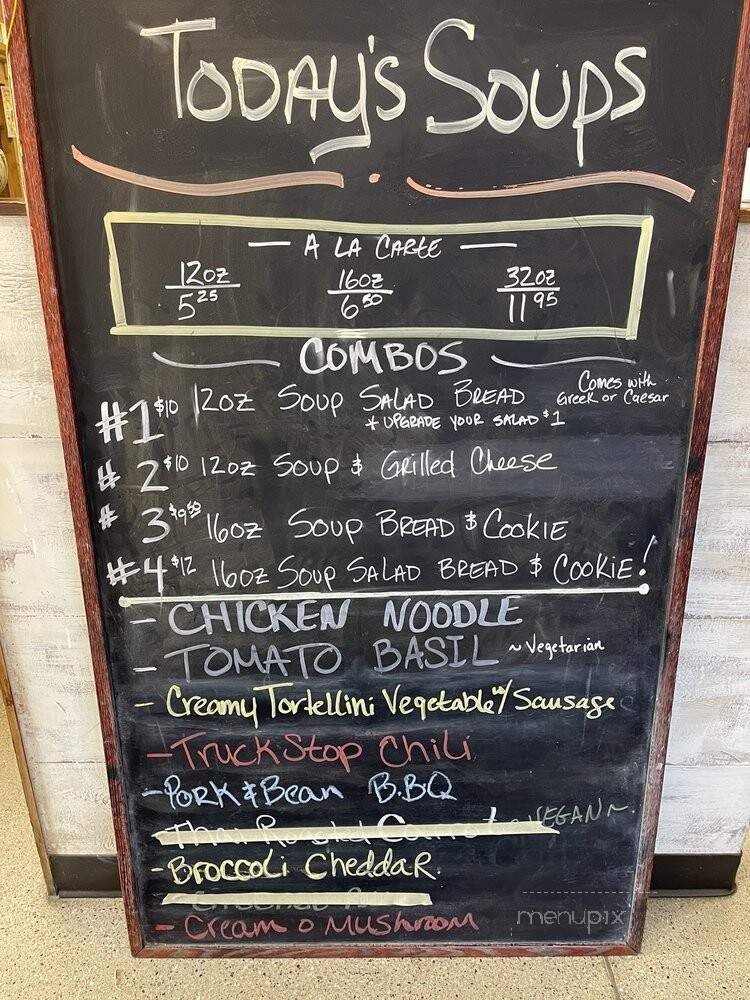 TODAY'S SOUPS
A LA CARTE
12oz 16oz 32oz
5.25 6.50 11.95
COMBOS
#1 $10 12oz SOUP SALAD BREAD Comes with Greek or Caesar
* UPGRADE YOUR SALAD $1
#2 $10 12oz SOUP & Grilled Cheese
#3 $9.50 16oz SOUP BREAD & COOKIE
#4 $12 16oz SOUP SALAD BREAD & COOKIE!
- CHICKEN NOODLE
- TOMATO BASIL ~ Vegetarian
- Creamy Tortellini Vegetable w/ Sausage
- Truck Stop Chili
- PORK & Bean B.BQ
VEGAN ~
- BROCCOLI CHEDDAR.
- Cream o Mushroom
menupix